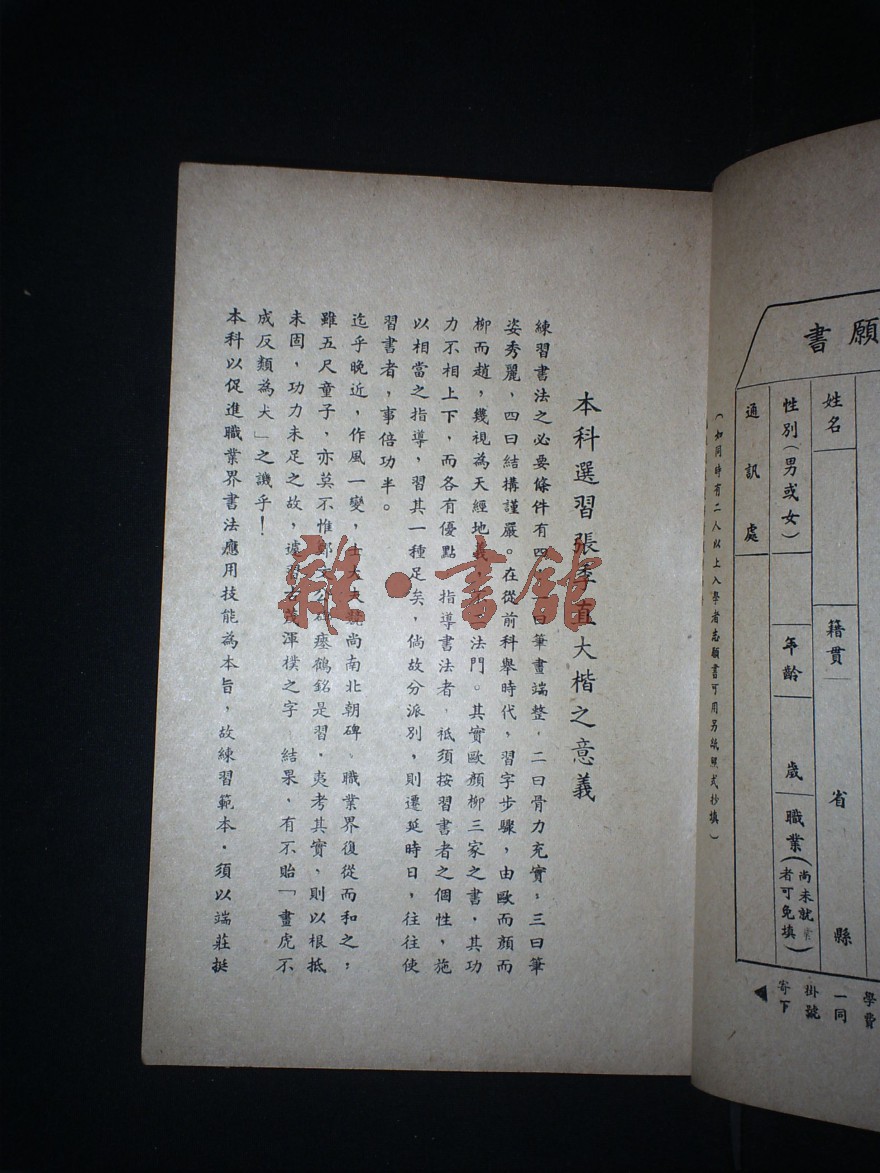 願
書
姓名
籍貫
省
縣
性別(男或女)
年齡
歲
職業(尚未就業者可免填)
通訊處
(如同時有二人以上入學者志願書可用另紙照式抄填)
學費
一同
掛號
寄下
本科選習張季直大楷之意義
練習書法之必要條件有四 一曰筆畫端整,二曰骨力充實,三曰筆
姿秀麗,四曰結構謹嚴。在從前科舉時代,習字步驟,由歐而顏而
柳而趙,幾視為天經地義 法門。其實歐顏柳三家之書,其功
力不相上下,而各有優點,指導書法者,祗須按習書者之個性,施
以相當之指導,習其一種足矣,倘故分派別,則遷延時日,往往使
習書者,事倍功半。
迄乎晚近,作風一變,士大夫 尚南北朝碑、職業界復從而和之;
雖五尺童子,亦莫不惟鄭文公碑瘞鶴銘是習,夷考其實,則以根抵
未固,功力未足之故,遽習古茂渾樸之字 結果,有不貽「畫虎不
成反類為犬」之譏乎!
本科以促進職業界書法應用技能為本旨,故練習範本,須以端莊挺
雜·書館